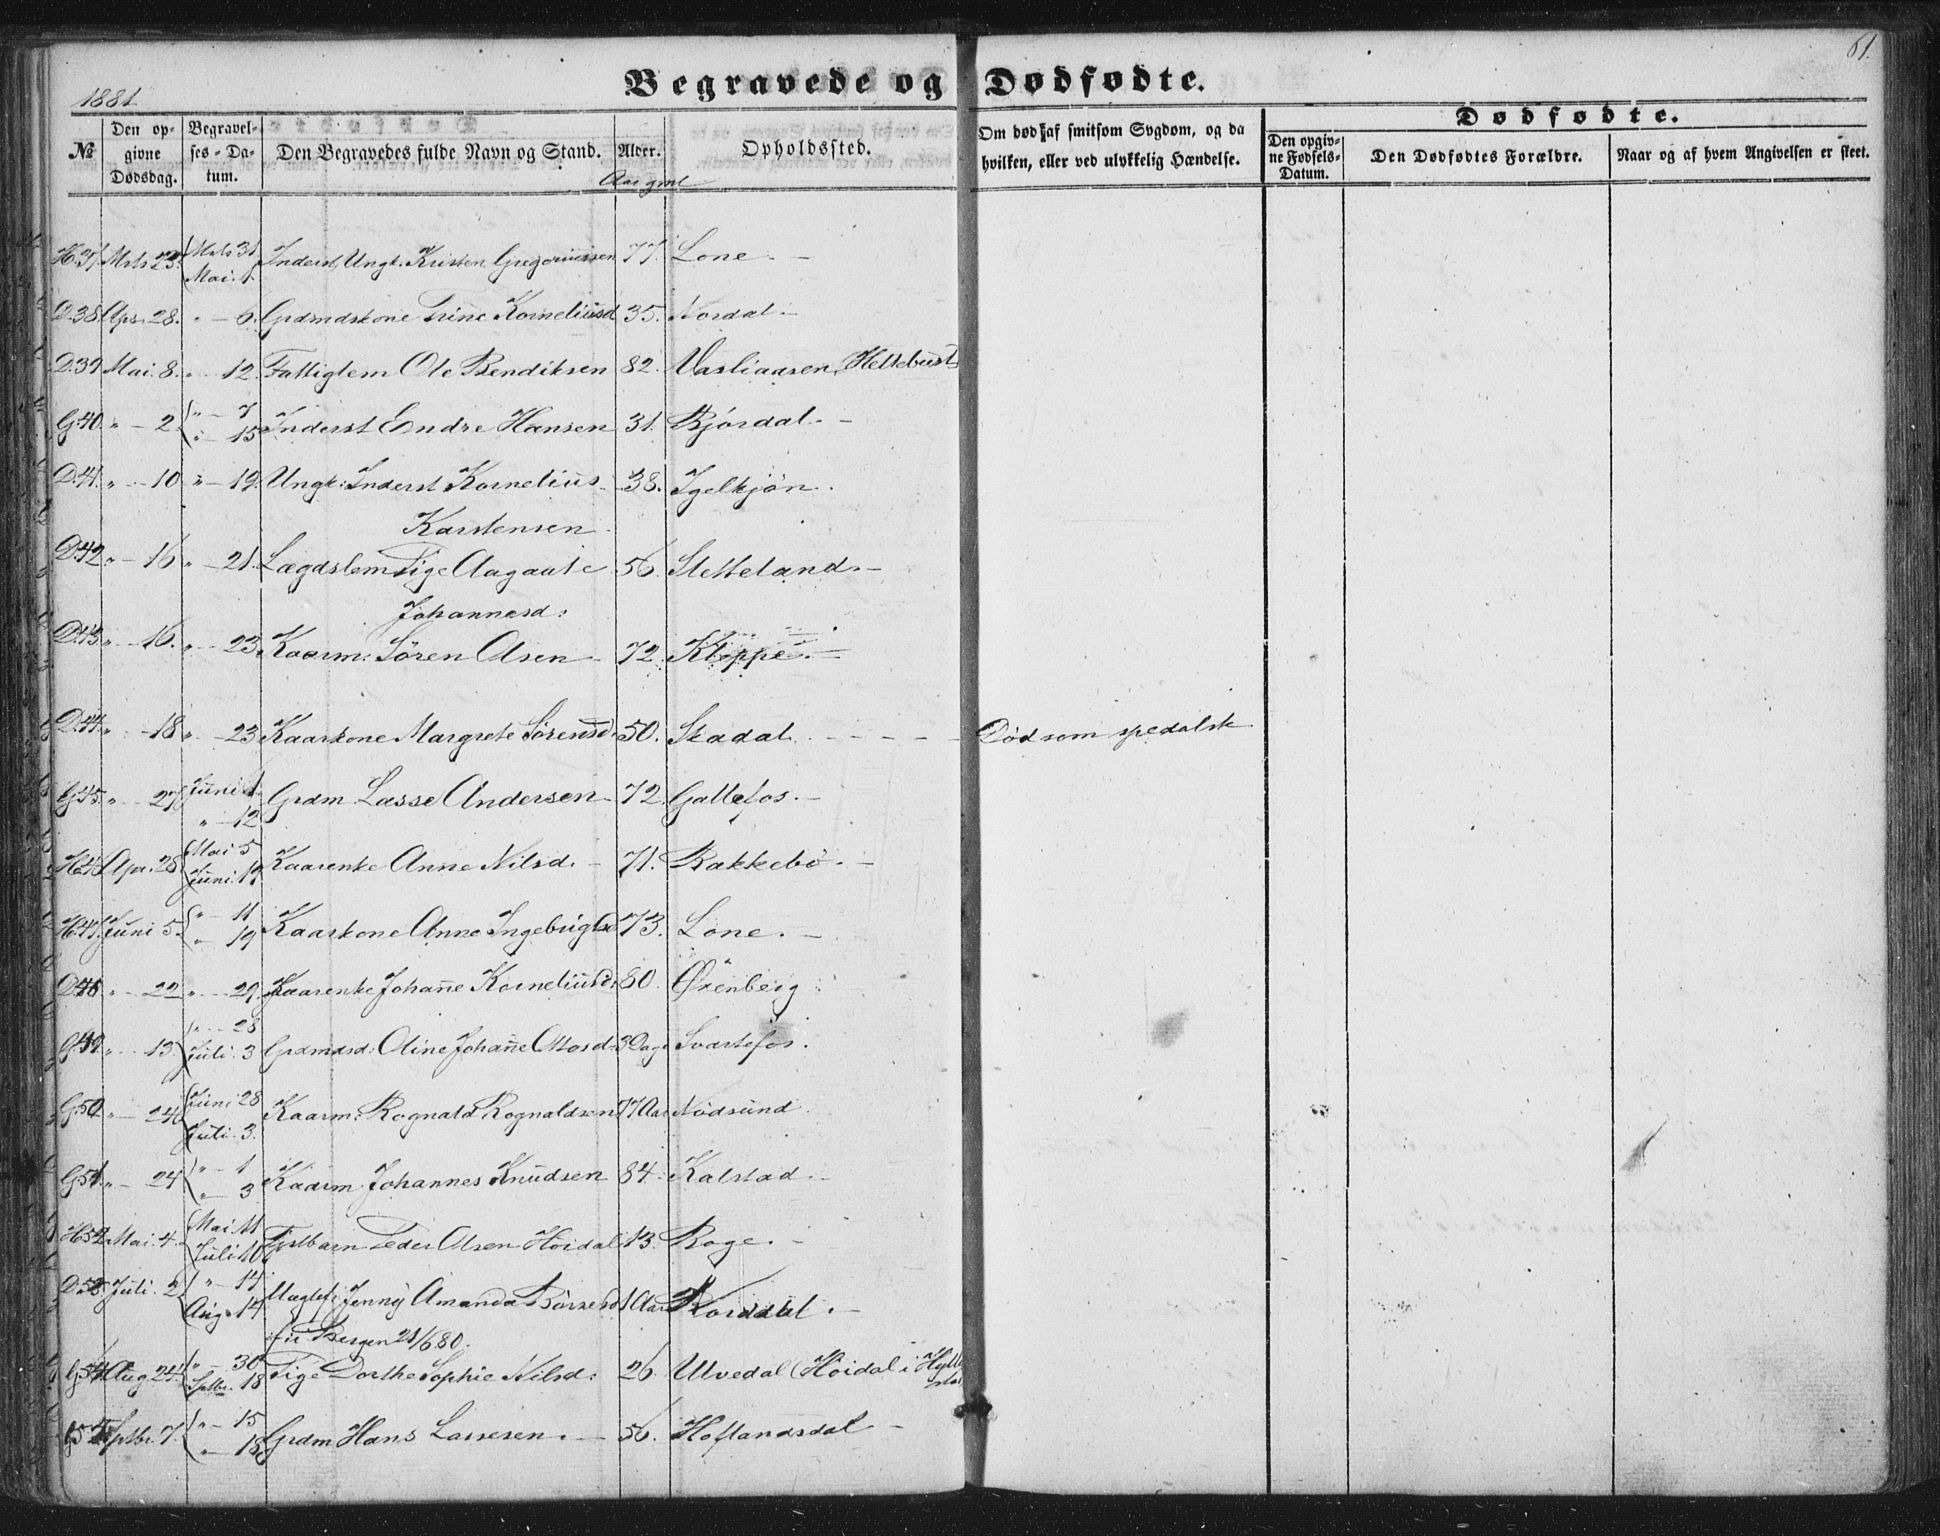 61.
1881
Begravede og Dødfødte.
Dødfødte.
№ Den opgivne Dødsdag. Begravelses-Datum. Den Begravedes fulde Navn og Stand. Alder. Opholdssted. Om død af smitsom Sygdom, og da hvilken, eller ved ulykkelig Hændelse. Den opgivne Fødsels-Datum. Den Dødfødtes Forældre. Naar og af hvem Angivelsen er skeet.
Aar gml
H.37. Mrts 23. Mrts 31. Mai. 1. Inderst, Ungk. Kristen Gregoriussen 77. Lone. -
D.38. Apr. 28. " - 6. Grdmdskone Trine Korneliusd 35. Nordal. -
D.39 Mai. 8. " - 12. Fattiglem Ole Bendiksen 82. Vasliaasen,
G.40. " - 2. " - 7 " - 15 Inderst Endre Hansen 31. Bjórdal. -
D.41. " - 10 " - 19. Ungk: Inderst Kornelius 38. Igelkjón.
Karstensen
D.42 " - 16 " - 21. Lægdslem Pige Aagaate 56. Sletteland. -
Johannesd:
D.43. " - 16. " - 23 Kaarm: Sören Olsen 72. Kleppe. -
D.44. " - 18 " - 23 Kaarkone Margrete Sörensd. 50. Skadal. - - - - Död som spedalsk
G.45. " - 27 Juni 1. " - 12 Grdm Lasse Andersen - 72. Gallefos. -
H.46 Apr. 28. Mai 5 Juni. 19. Kaarenke Anne Nilsd. - 71. Bakkebó. -
H.47. Juni 5. " - 11 " - 19 Kaarkone Anne Ingebrigtsd 73. Lone. -
D.48 " - 22 " - 29. Kaarenke Johanne Korneliusd: 80. Öxenberg.
G.49. " - 13. " - 28 Juli. 3 Grdmdsd: Oline Johanne Ottosd. 3 Dage Svartefos.
G.50 " - 24 Juni 28 Juli. 3. Kaarm: Rognald Rognaldsen 77 Aar Nódsund.
G.51. " - 24 " - 1 " - 3 Kaarm Johannes Knudsen 84. Kalstad. -
H.52 Mai. 4. Mai. 11 Juli. 10 Peder Olsen Höidal 13. Roge. -
D.53. Juli. 2 " - 17 Aug. 14 Jenny Amanda 1 Aar
fü Bergen 21/6 80.
G.54. Aug. 24. " - 30 Sptbr. 18 Pige Dorthe Sophie Nilsd: 26. Ulvedal (Höidal i
Sptbr. 7. " - 15 " - 18 Grdm Hans Lassesen. - 56. Hoflandsdal -